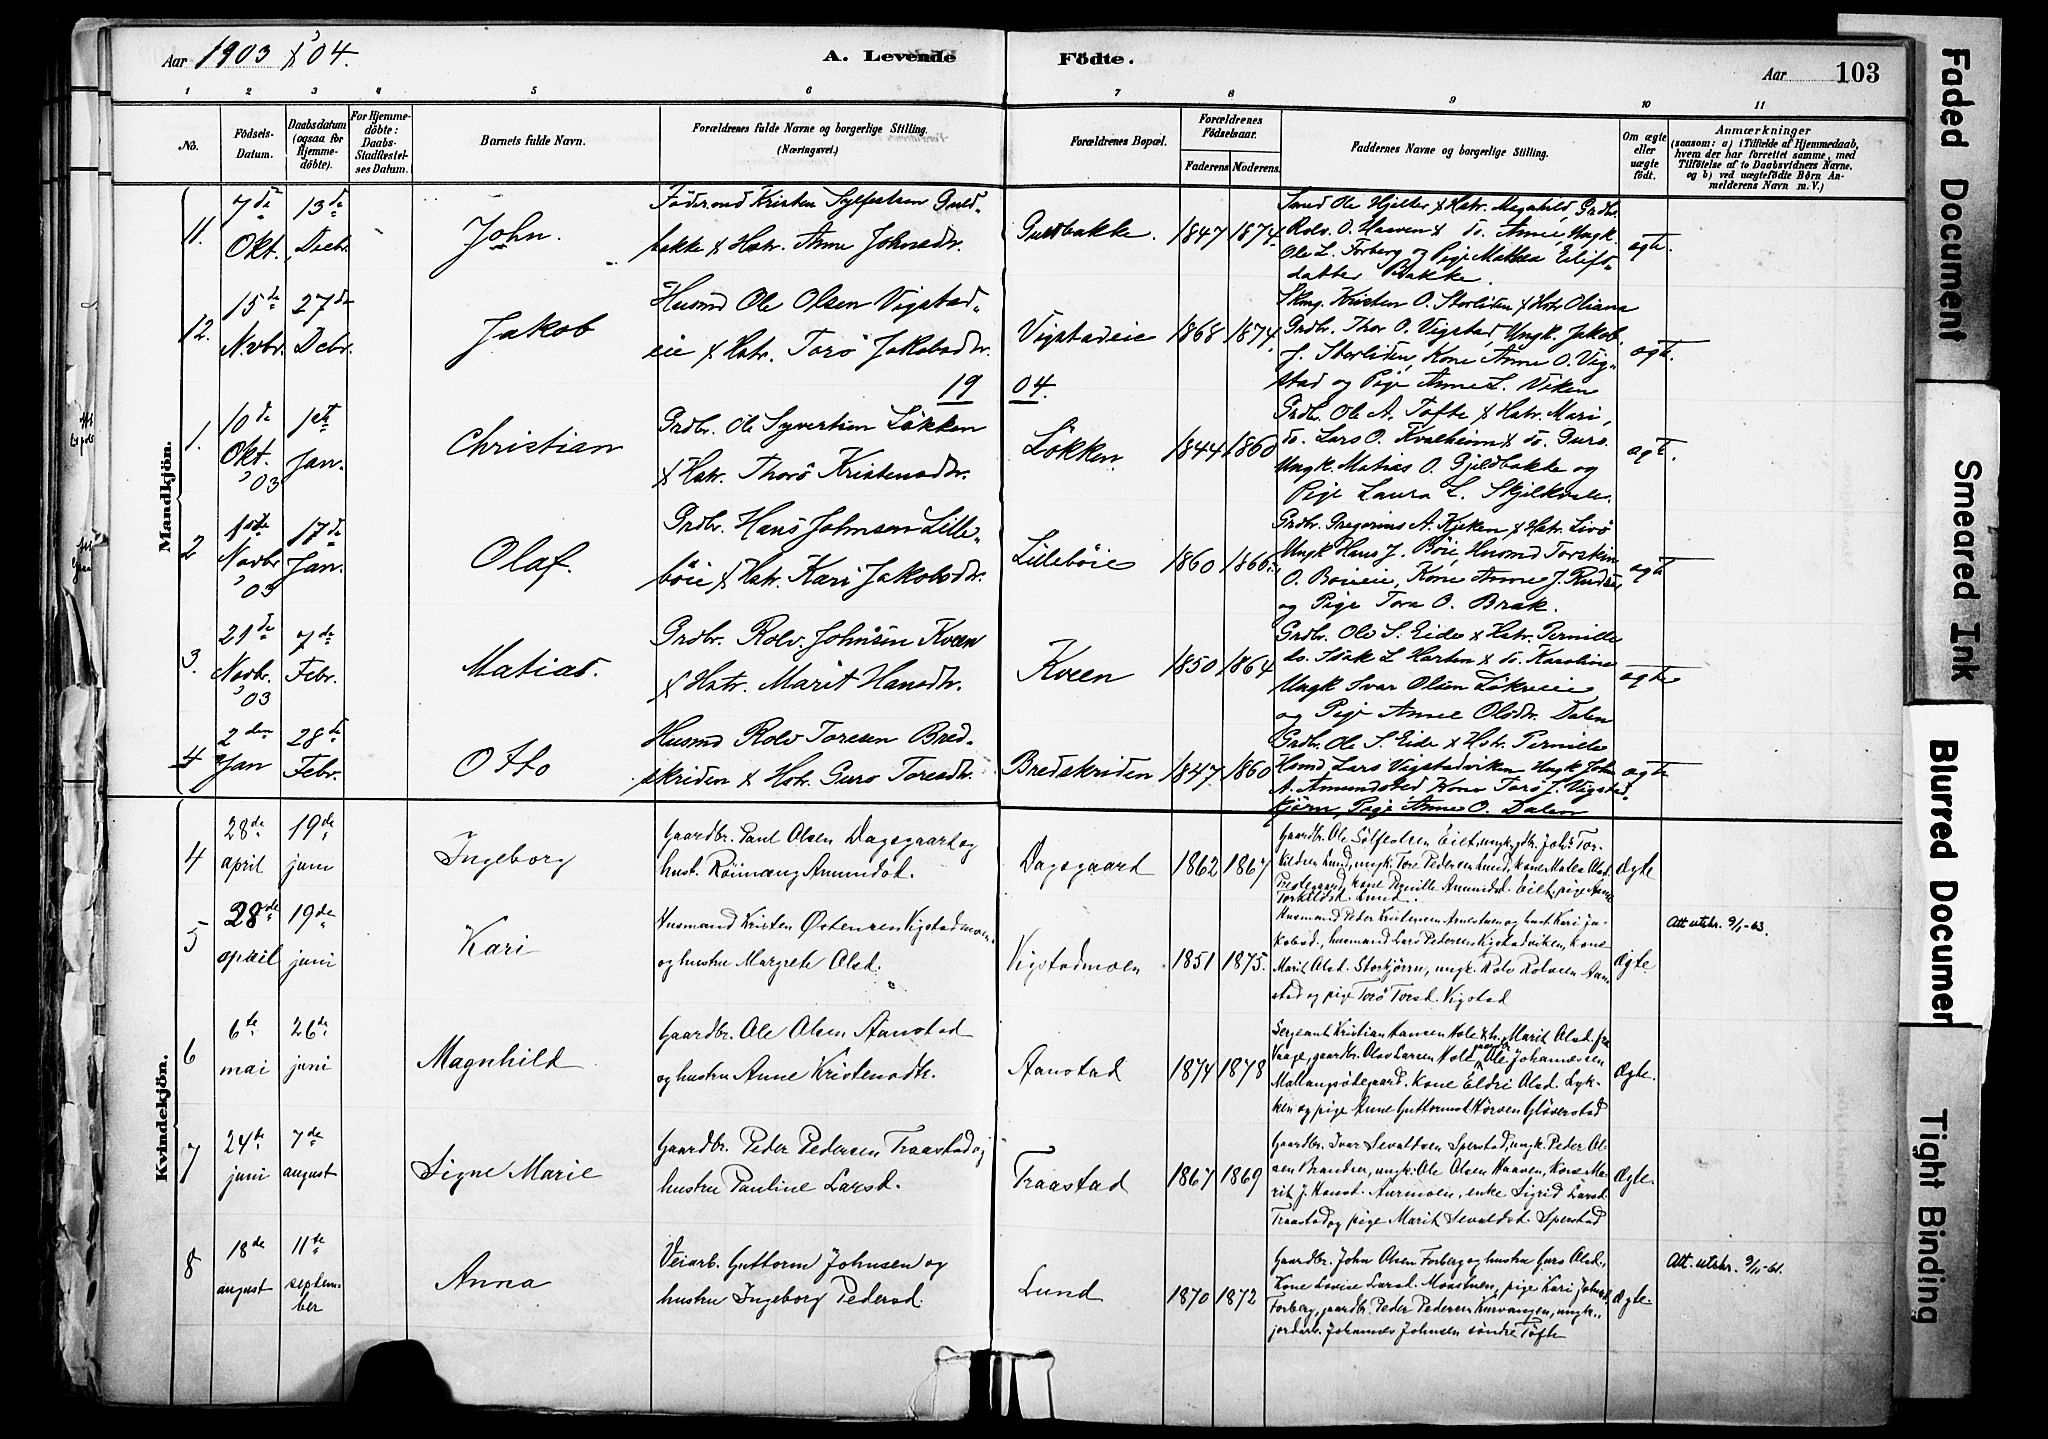 Aar 1903 & '04.
A. Levende Födte.
Aar 103
1 2 3 4 5 6 7 8 9 10 11
No.
Födsels-Datum.
Daabsdatum (ogsaa for Hjemmedöbte).
For Hjemmedöbte: Daabs-Stadfæstelses Datum.
Barnets fulde Navn.
Forældrenes fulde Navne og borgerlige Stilling.
(Næringsvei.)
Forældrenes Bopæl.
Forældrenes Födselsaar.
Faderens Moderens.
Faddernes Navne og borgerlige Stilling.
Om ægte eller uægte födt.
Anmærkninger
(saasom: a) i Tilfælde af Hjemmedaab,
hvem der har forrettet samme, med
Tilföielse af to Daabsvidners Navne.
og b) ved uægtefödte Börn An-
melderens Navn m. V.)
Mandkjön.
11. 7de Okt. 13de Decbr.
John.
Föderaad Kristen Sylfestsen Guld-
bakke & Hstr. Anne Johnsdtr.
Guldbakke. 1847 1874.
Smed Ole Hjelter & Hstr. Magnhild, Grdbr.
Rolv. O. Haaven & do. Anne, Ungk.
Ole L. Forberg og Pige Mathea Eilifs-
datter Bakke.
ægte.
12. 15de Novbr. 27de Decbr.
Jakob
Husmd Ole Olsen Vigstad-
eie & Hstr. Torö Jakobsdtr.
Vigstadeie 1868 1874.
Skmg. Kristen O. Storliden & Hstr Oliana
Grdbr. Thor O. Vigstad, Ungk. Jakob
J. Storliden, Kone Anne O. Vig-
stad og Pige Anne L. Viken
ægte.
19 04.
1. 10de Okt. '03 1ste Jan.
Christian
Grdbr. Ole Syvertsen Lökken
& Hstr. Thorö Kristensdtr.
Lökken. 1844 1860
Grdbr. Ole A. Tofte & Hstr. Mari,
do. Lars O. Kvalheim & do. Guro.
Ungk. Matias O. Gjeldbakke og
Pige Laura L. Skjelkvale.
ægte.
2 Novbr '03 17de Jan.
Olaf.
Grdbr. Hans Johnsen Lille-
böie & Hstr. Kari Jakobsdtr.
Lilleböie 1860 1866.
Grdbr. Gregorius A. Kjeken & Hstr. Livö
Ungk Hans J. Böie, Husmd Torstein
O. Böieie, Kone Anne J.
og Pige Tora O. Brak.
ægte
3. 21de Novbr. '03 7de Febr.
Matias.
Grdbr. Rolv Johnsen Kveen
& Hstr. Marit Hansdtr.
Kveen 1850 1864
Grdbr. Ole S. Eide & Hstr. Pernille
do. Isak L Horten & do. Karoline
Ungk Ivar Olsen Lökreie
og Pige Anne Olsdtr. Dalen
ægte
4 2den Jan 28de Febr.
Otto
Husmd Rolv Toresen Bred-
skriden & Hstr. Guro Toresdtr.
Bredskriden 1847 1860
Grdbr. Ole S. Eide & Hstr. Pernille
Hsmd Lars Vigstadviken Ungk John
A. Amundstad Kone Torö J. Vigstad-
kjörn, Pige Anne O. Dalen
ægte
Kvindekjön.
4 28de april 19de juni
Ingeborg
Gaardbr. Paul Olsen Dagsgaard og
hust. Röimaug Amundsd.
Dagsgaard 1862 1867
Gaardbr. Ole Sølfestsen Eilt, ungk, gdbr. Johs Tor-
kildsen Lund, ungk. Tore Pedersen Lund, kone Matea Olsd.
Prestegaard, kone Pernille Amundsd. Eilt, pige Anne
Torkildsd. Lund.
ægte
5 28de april 19de juni
Kari
Husmand Kristen Østensen Vigstadmoen
og hustru Margrete Olsd.
Vigstadmoen 1851 1875.
Husmand Peder Kristensen Arnestuen og hust Kari Ja-
kobsd., husmand Lars Pedersen Vigstadviken, kone
Marit Olsd. Storkjörn, ungk. Rolv Rolvsen Aan-
stad og pige Torö Torsd. Vigstad
ægte.
Att. utskr. 9/1-63.
6 6te mai 26de juni
Magnhild
Gaardbr. Ole Olsen Aanstad
og hustru Anne Kristensdtr.
Aanstad 1874 1878
Sergeant Kristian Hansen Hole & h. Marit Olsd. fra
Vaage, gaardbr. Olav Larsen Hole, gaardbr. Ole Johannessen
Mallangsödegaard. Kone Eldri Olsd. Lyk-
ken og pige Anne Guttormsd Horven Glöverstad
ægte.
7 24de juni 7de august
Signe Marie
Gaardbr. Peder Pedersen Traastad og
hustru Pauline Larsd.
Traastad 1867 1869
Gaardbr. Ivar Sevaldsen Sperstad, ungk. Peder Ol-
sen Brandsr, ungk. Ole Olsen Haaven, Kone Ma-
rit J. Hansd. Aurmoen, enke Sigrid Larsd.
Traastad og pige Marit Sevaldsd. Sperstad
ægte.
8 18de august 11te september
Anna
Veiarb. Guttorm Johnsen og
hustru Ingeborg Pedersd.
Lund 1870 1872
Gaardbr. John Olsen Forberg og hustru Guro Olsd.,
Kone Lovise Larsd. Moastuen, pige Kari Johnsd.
Forberg, gaardbr. Peder Pedersen Kurvangen, ungk.,
jordarb. Johannes Johnsen søndre Tofte
ægte
Att. utskr. 9/1-61.
Faded Document
Smeared Ink
Blurred Documen
Tight Binding